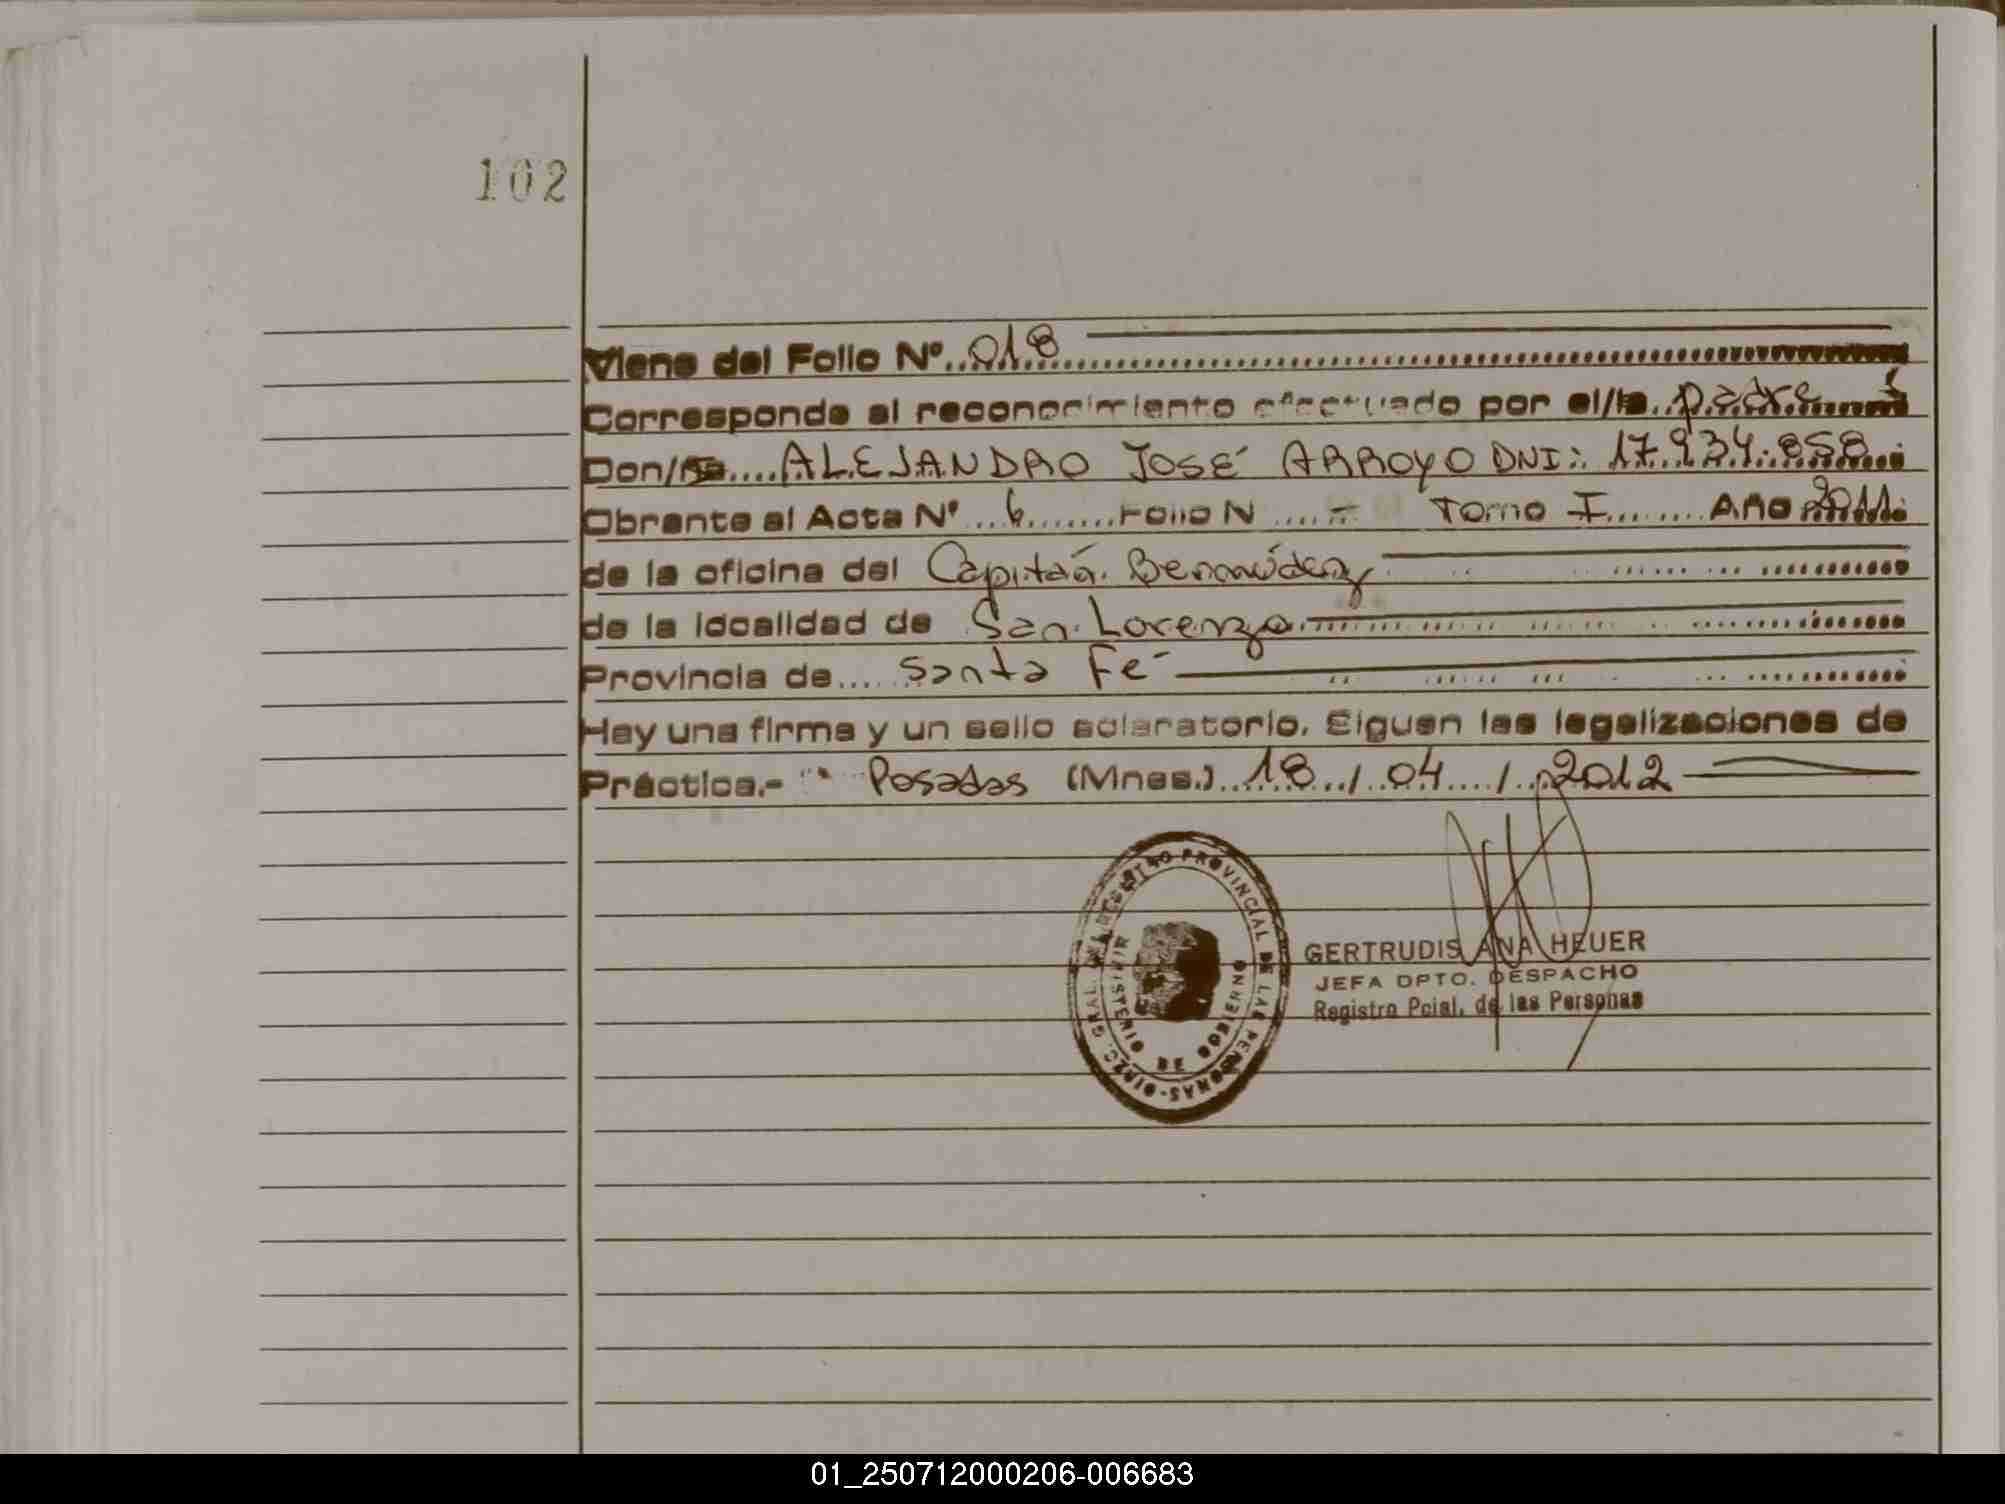 102
Viene del Folio Nº 018
Corresponde al reconocimiento efectuado por el/la padre
Don/ña ALEJANDRO JOSÉ ARROYO DNI: 17.934.858
Obrante al Acta Nº 6 Folio N - Tomo I Año 2011
de la oficina del Capitán Bermúdez
de la localidad de San Lorenzo
Provincia de Santa Fé
Hay una firma y un sello aclaratorio. Siguen las legalizaciones de
Práctica.- Posadas (Mnes.) 18 / 04 / 2012
DIREC. GRAL. DEL REGISTRO PROVINCIAL DE LAS PERSONAS
MINISTERIO DE GOBIERNO
GERTRUDIS ANA HEUER
JEFA DPTO. DESPACHO
Registro Pcial. de las Personas
01_250712000206-006683